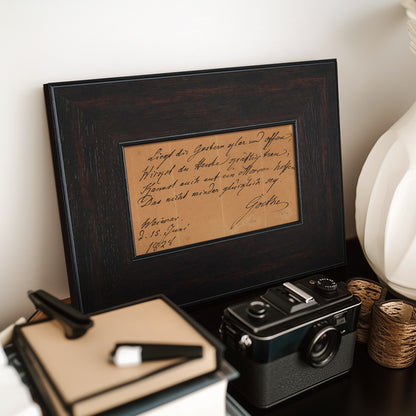 Liegt dir Gestern klar und offen,
Wirkst du Heute kräftig frei,
Kannst auch auf ein Morgen hoffen
Das nicht minder glücklich sey
Weimar
d. 15. Juni
1828
Goethe